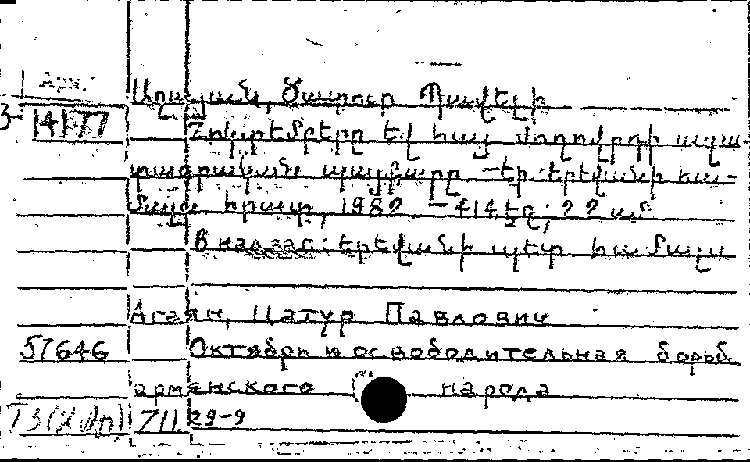 Арх.
Աղայան, Ծատուր Պավելի
3- 14177
Հոկտեմբերը և հայ ժողովրդի ազա-
տագրական պայքարը - Եր.: Երևանի հա-
մալս. հրատ., 1982 - 414 էջ; 22 սմ
В надзаг.: Երևանի պետ. համալս
Агаян, Цатур Павлович
57646 Октябрь и освободительная борьб.
армянского народа
Т3(2Ар) 711. 29-9